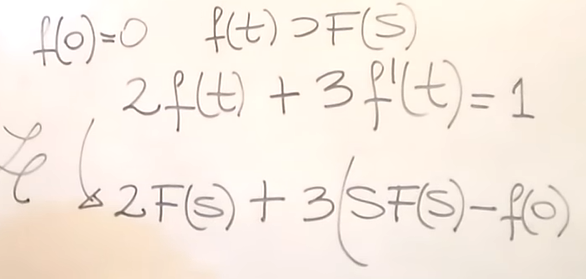 f(0)=0 f(t) ⊃ F(S)
2f(t) + 3f'(t) = 1
ℒ ↘ 2F(S) + 3(SF(S) - f(0)